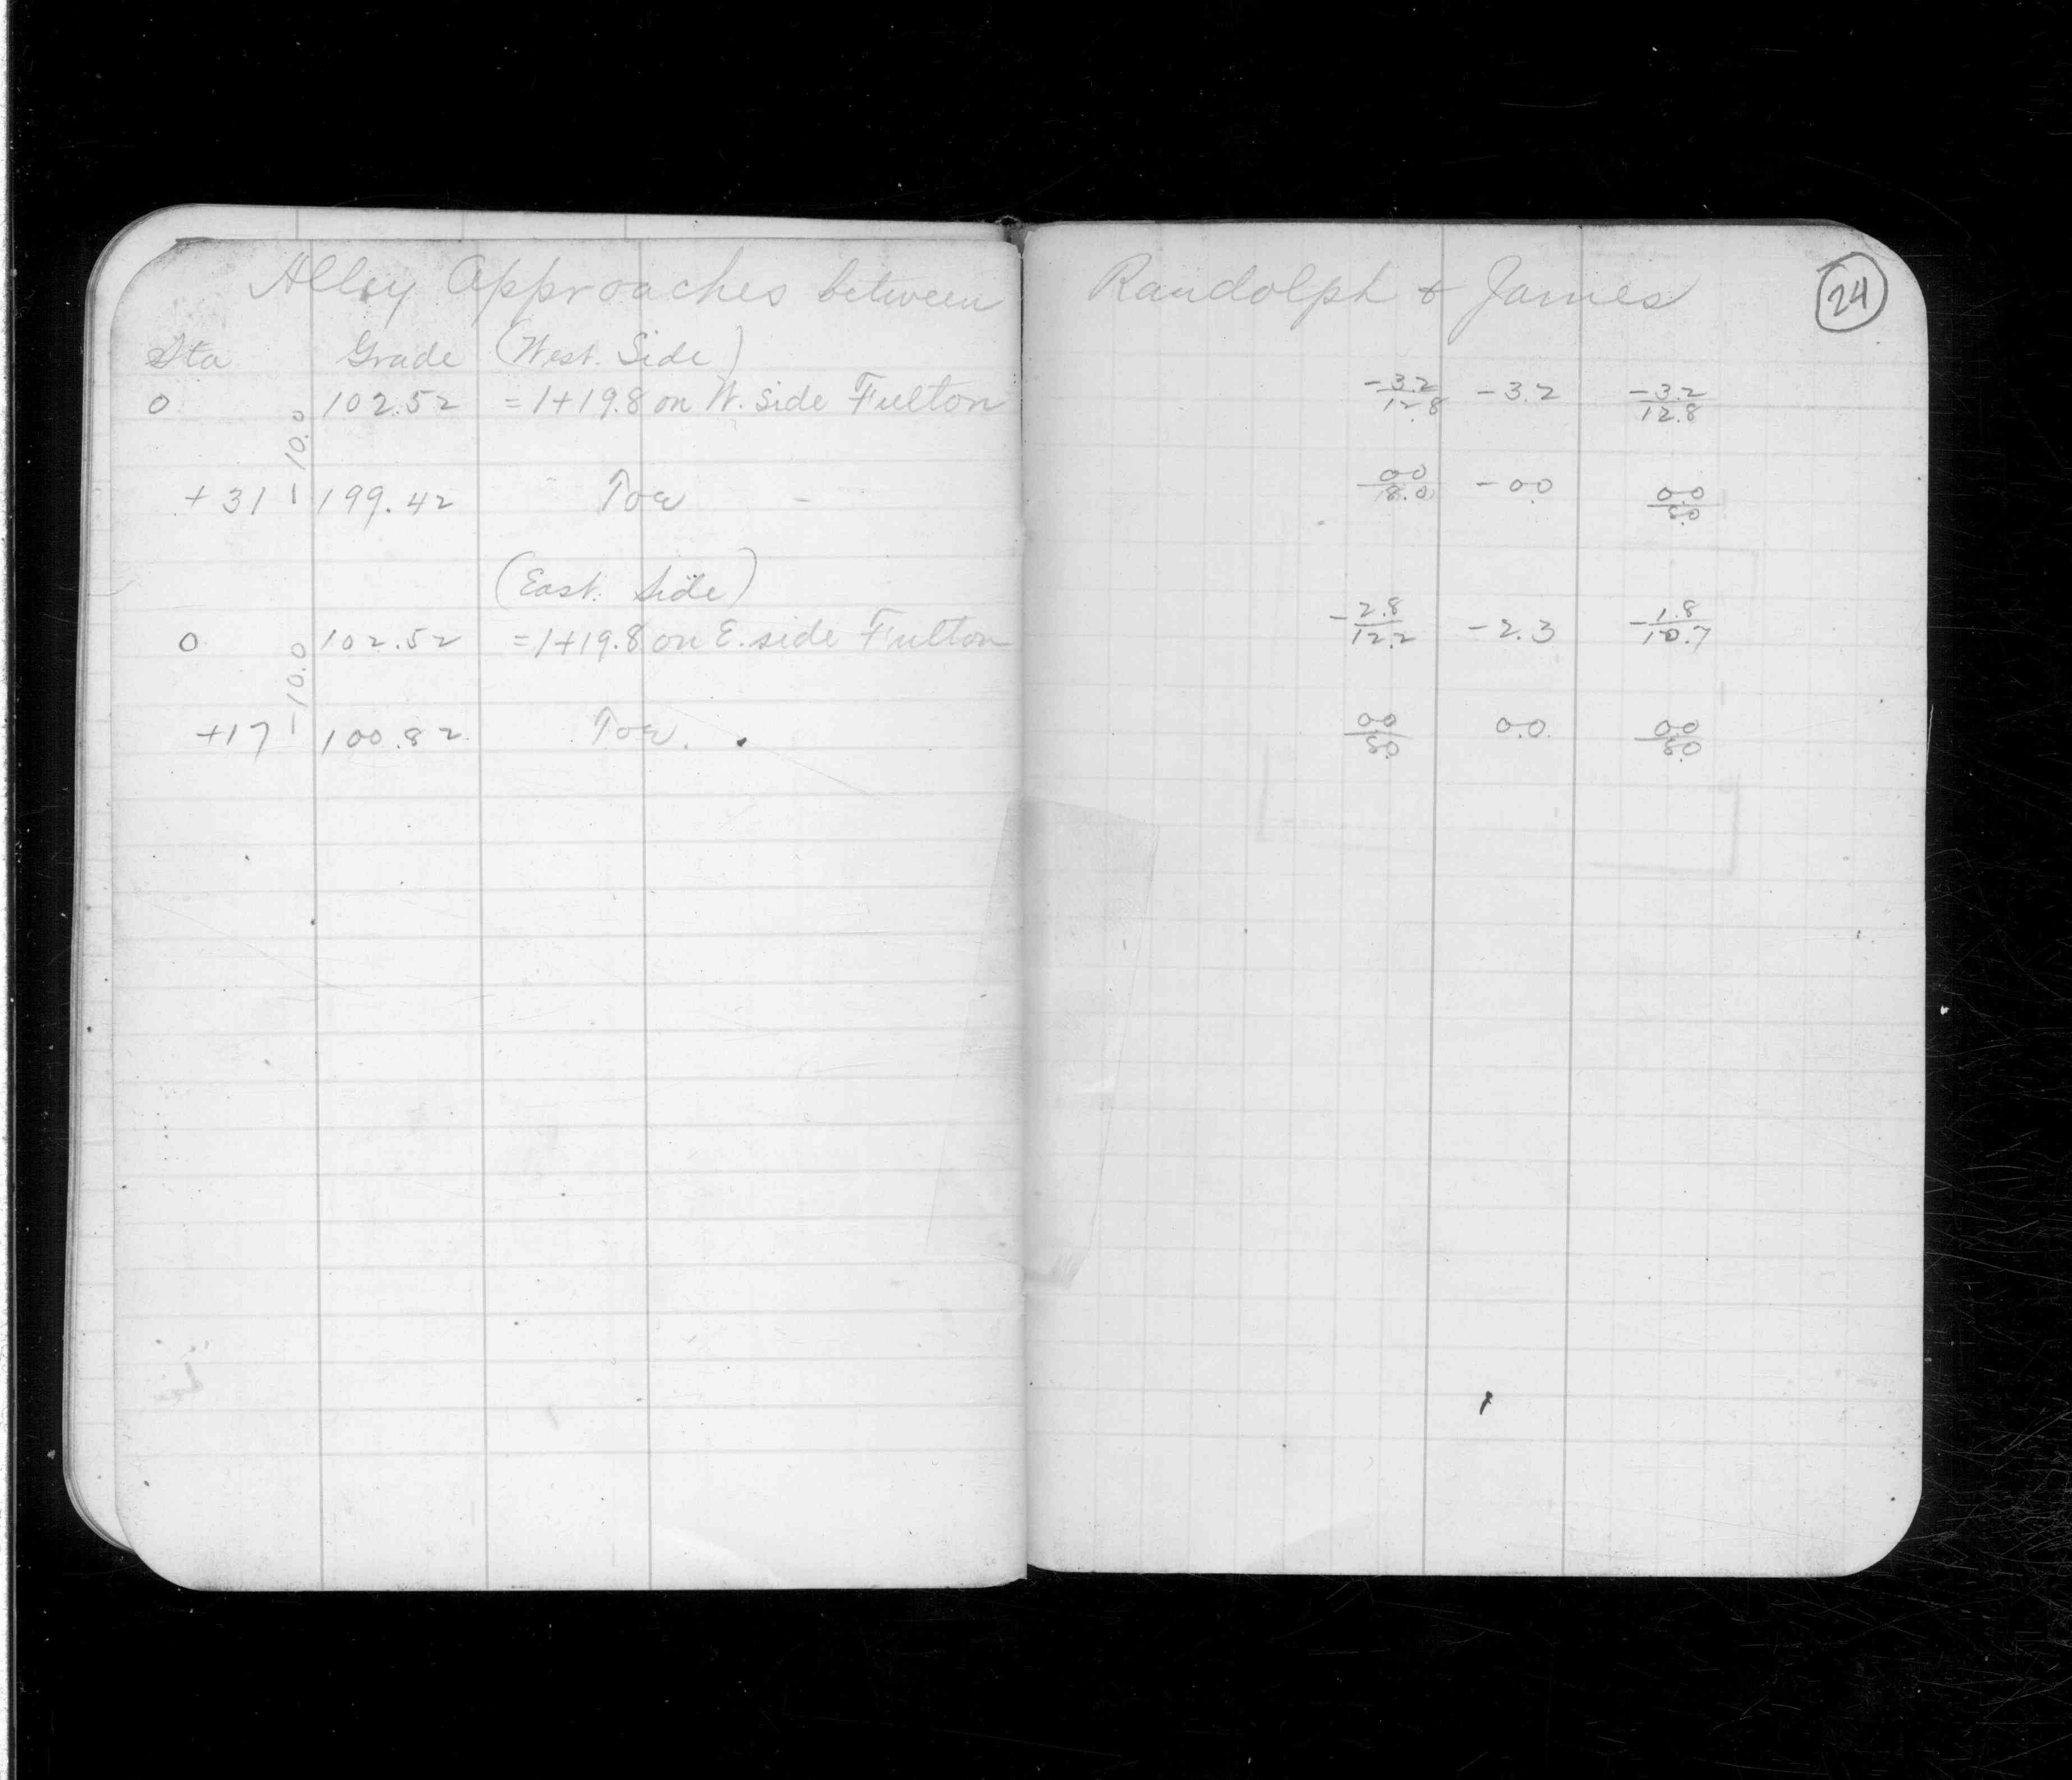 Alley Approaches between Randolph & James 24
Sta Grade (West. Side)
0 102.52 = 1+19.8 on W. side Fulton -3.2/12.8 -3.2 -3.2/12.8
-10.0
+31 199.42 Toe 00/8.0 -0.0 0.0/8.0
(East. Side)
0 102.52 = 1+19.8 on E. side Fulton -2.8/12.2 -2.3 -1.8/10.7
-10.0
+17 100.82 Toe. 00/8.0 0.0 00/8.0